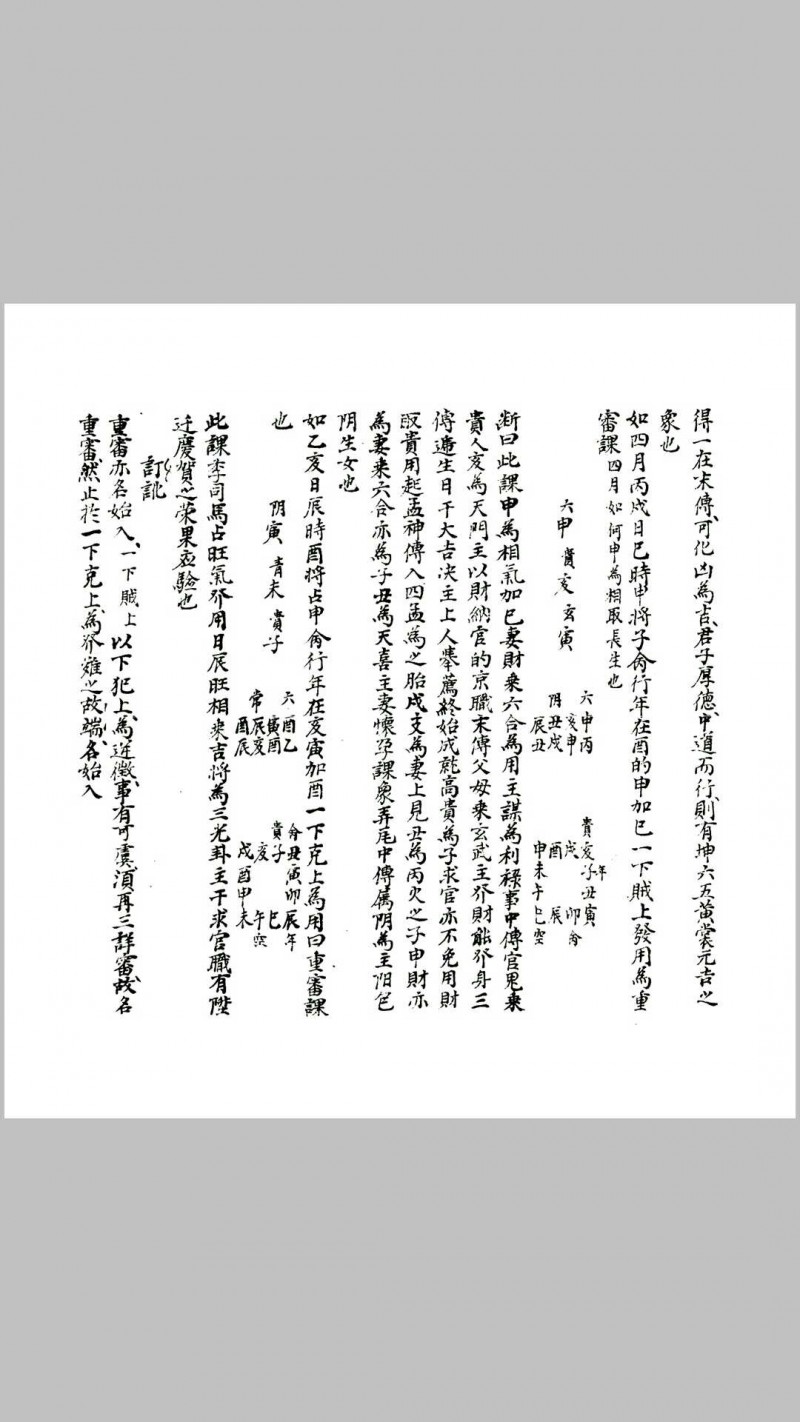 得一在末傳可化凶為吉君子厚德中道而行則有坤六五黃裳元吉之
象也
如四月丙戌日巳時申將子命行年在酉的申加巳一下賊上發用為重
審課四月如何申為相取長生也
六申 貴亥 玄寅
六申丙
亥申
阴丑戌
辰丑
貴亥子年丑寅
戌 卯命
酉 辰
申未午巳空
断曰此課申為相氣加巳妻財乘六合為用主謀為利祿事中傳官鬼乘
貴人亥為天門主以財納官的京職末傳父母乘玄武主發財能發身三
傳遞生日干大吉决主上人舉薦終始成就高貴為子求官亦不免用財
取貴用起孟神傳入四孟為之胎戌支為妻上見丑為丙火之子申財亦
為妻乘六合亦為子丑為天喜主妻懷孕課象弄尾中傳属阴為主阳包
阴生女也
如乙亥日辰時酉將占申命行年在亥寅加酉一下克上為用曰重審課
也
阴寅 青未 貴子
六酉乙
寅酉
常辰亥
酉辰
命丑寅卯辰年
貴子 巳
亥 午空
戌酉申未
此課李司馬占旺氣發用日辰旺相乘吉將為三光卦主干求官職有陞
迁慶賀之荣果应驗也
訂訛
重審亦名始入一下賊上以下犯上為逆徵事有可虞須再三詳審故名
重審然止於一下克上為發难之故端名始入